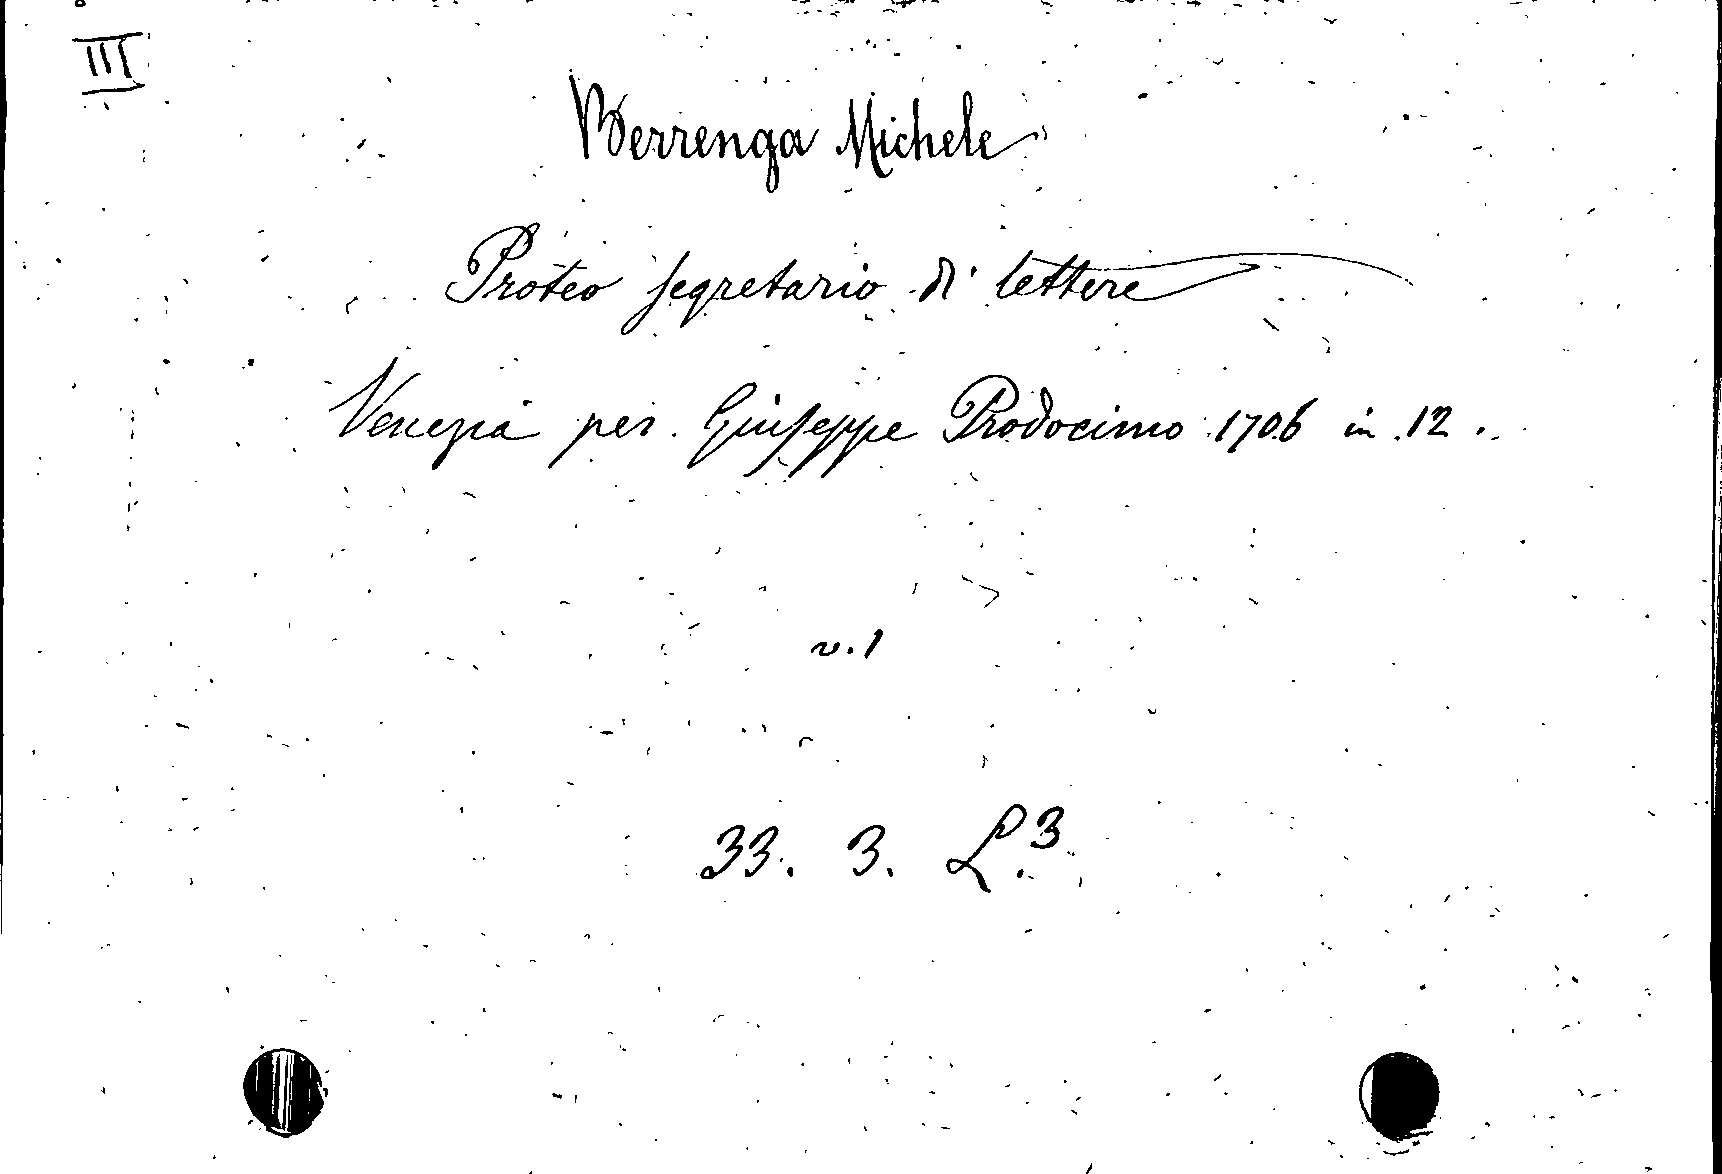 III
Berrenga Michele
Proteo segretario di lettere
Venezia per Giuseppe Prodocimo 1706 in 12.
v. 1
33. 3. L.3